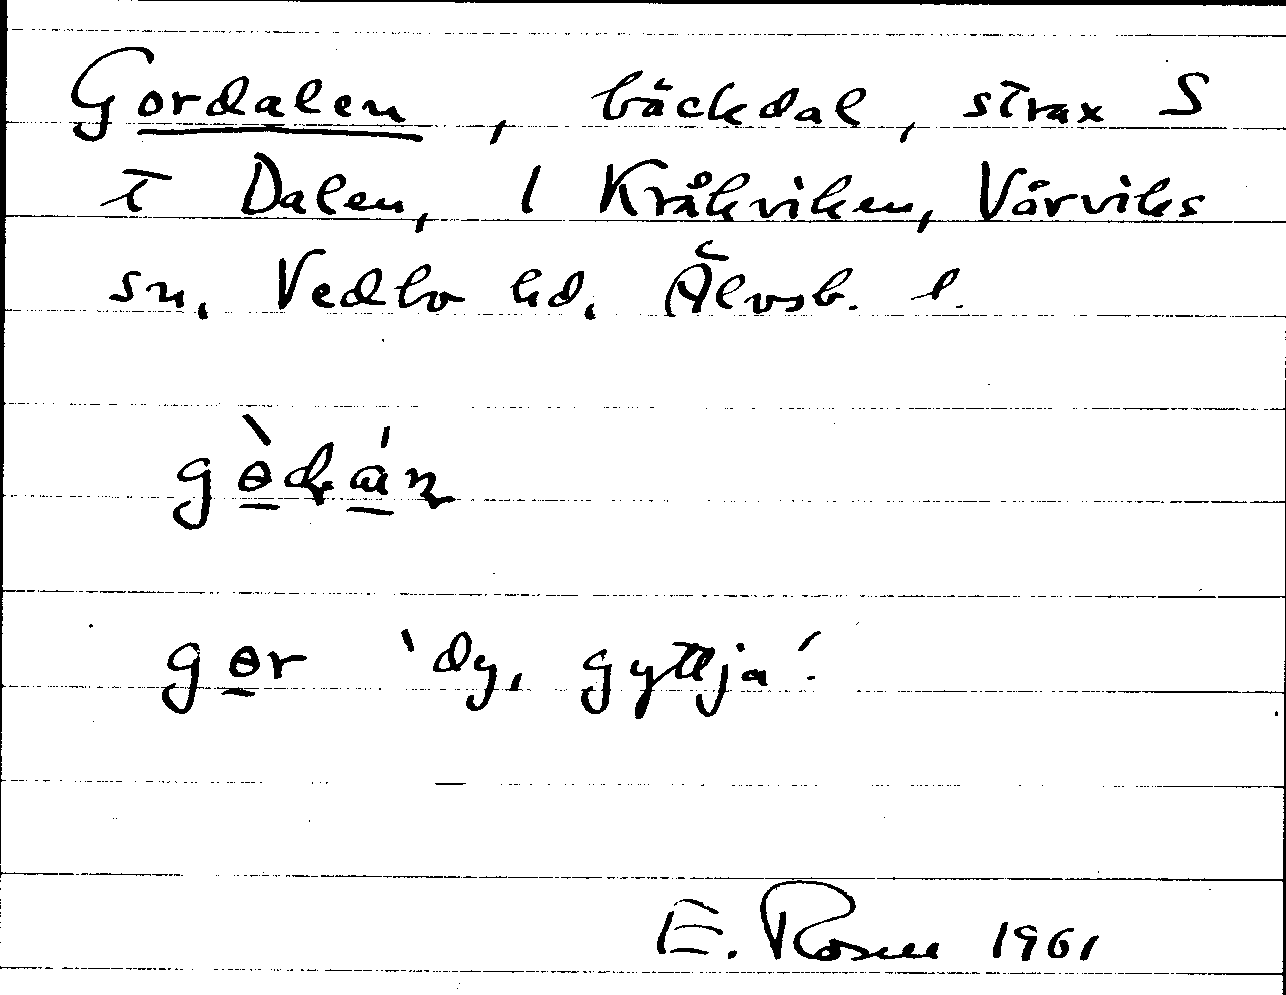 Gordalen, bäckdal, strax S
t Dalen, 1 Kråkviken, Vårviks
sn, Vedbo hd, Älvsb. l.
gor 'dy, gyttja'.
E. Rosell 1961